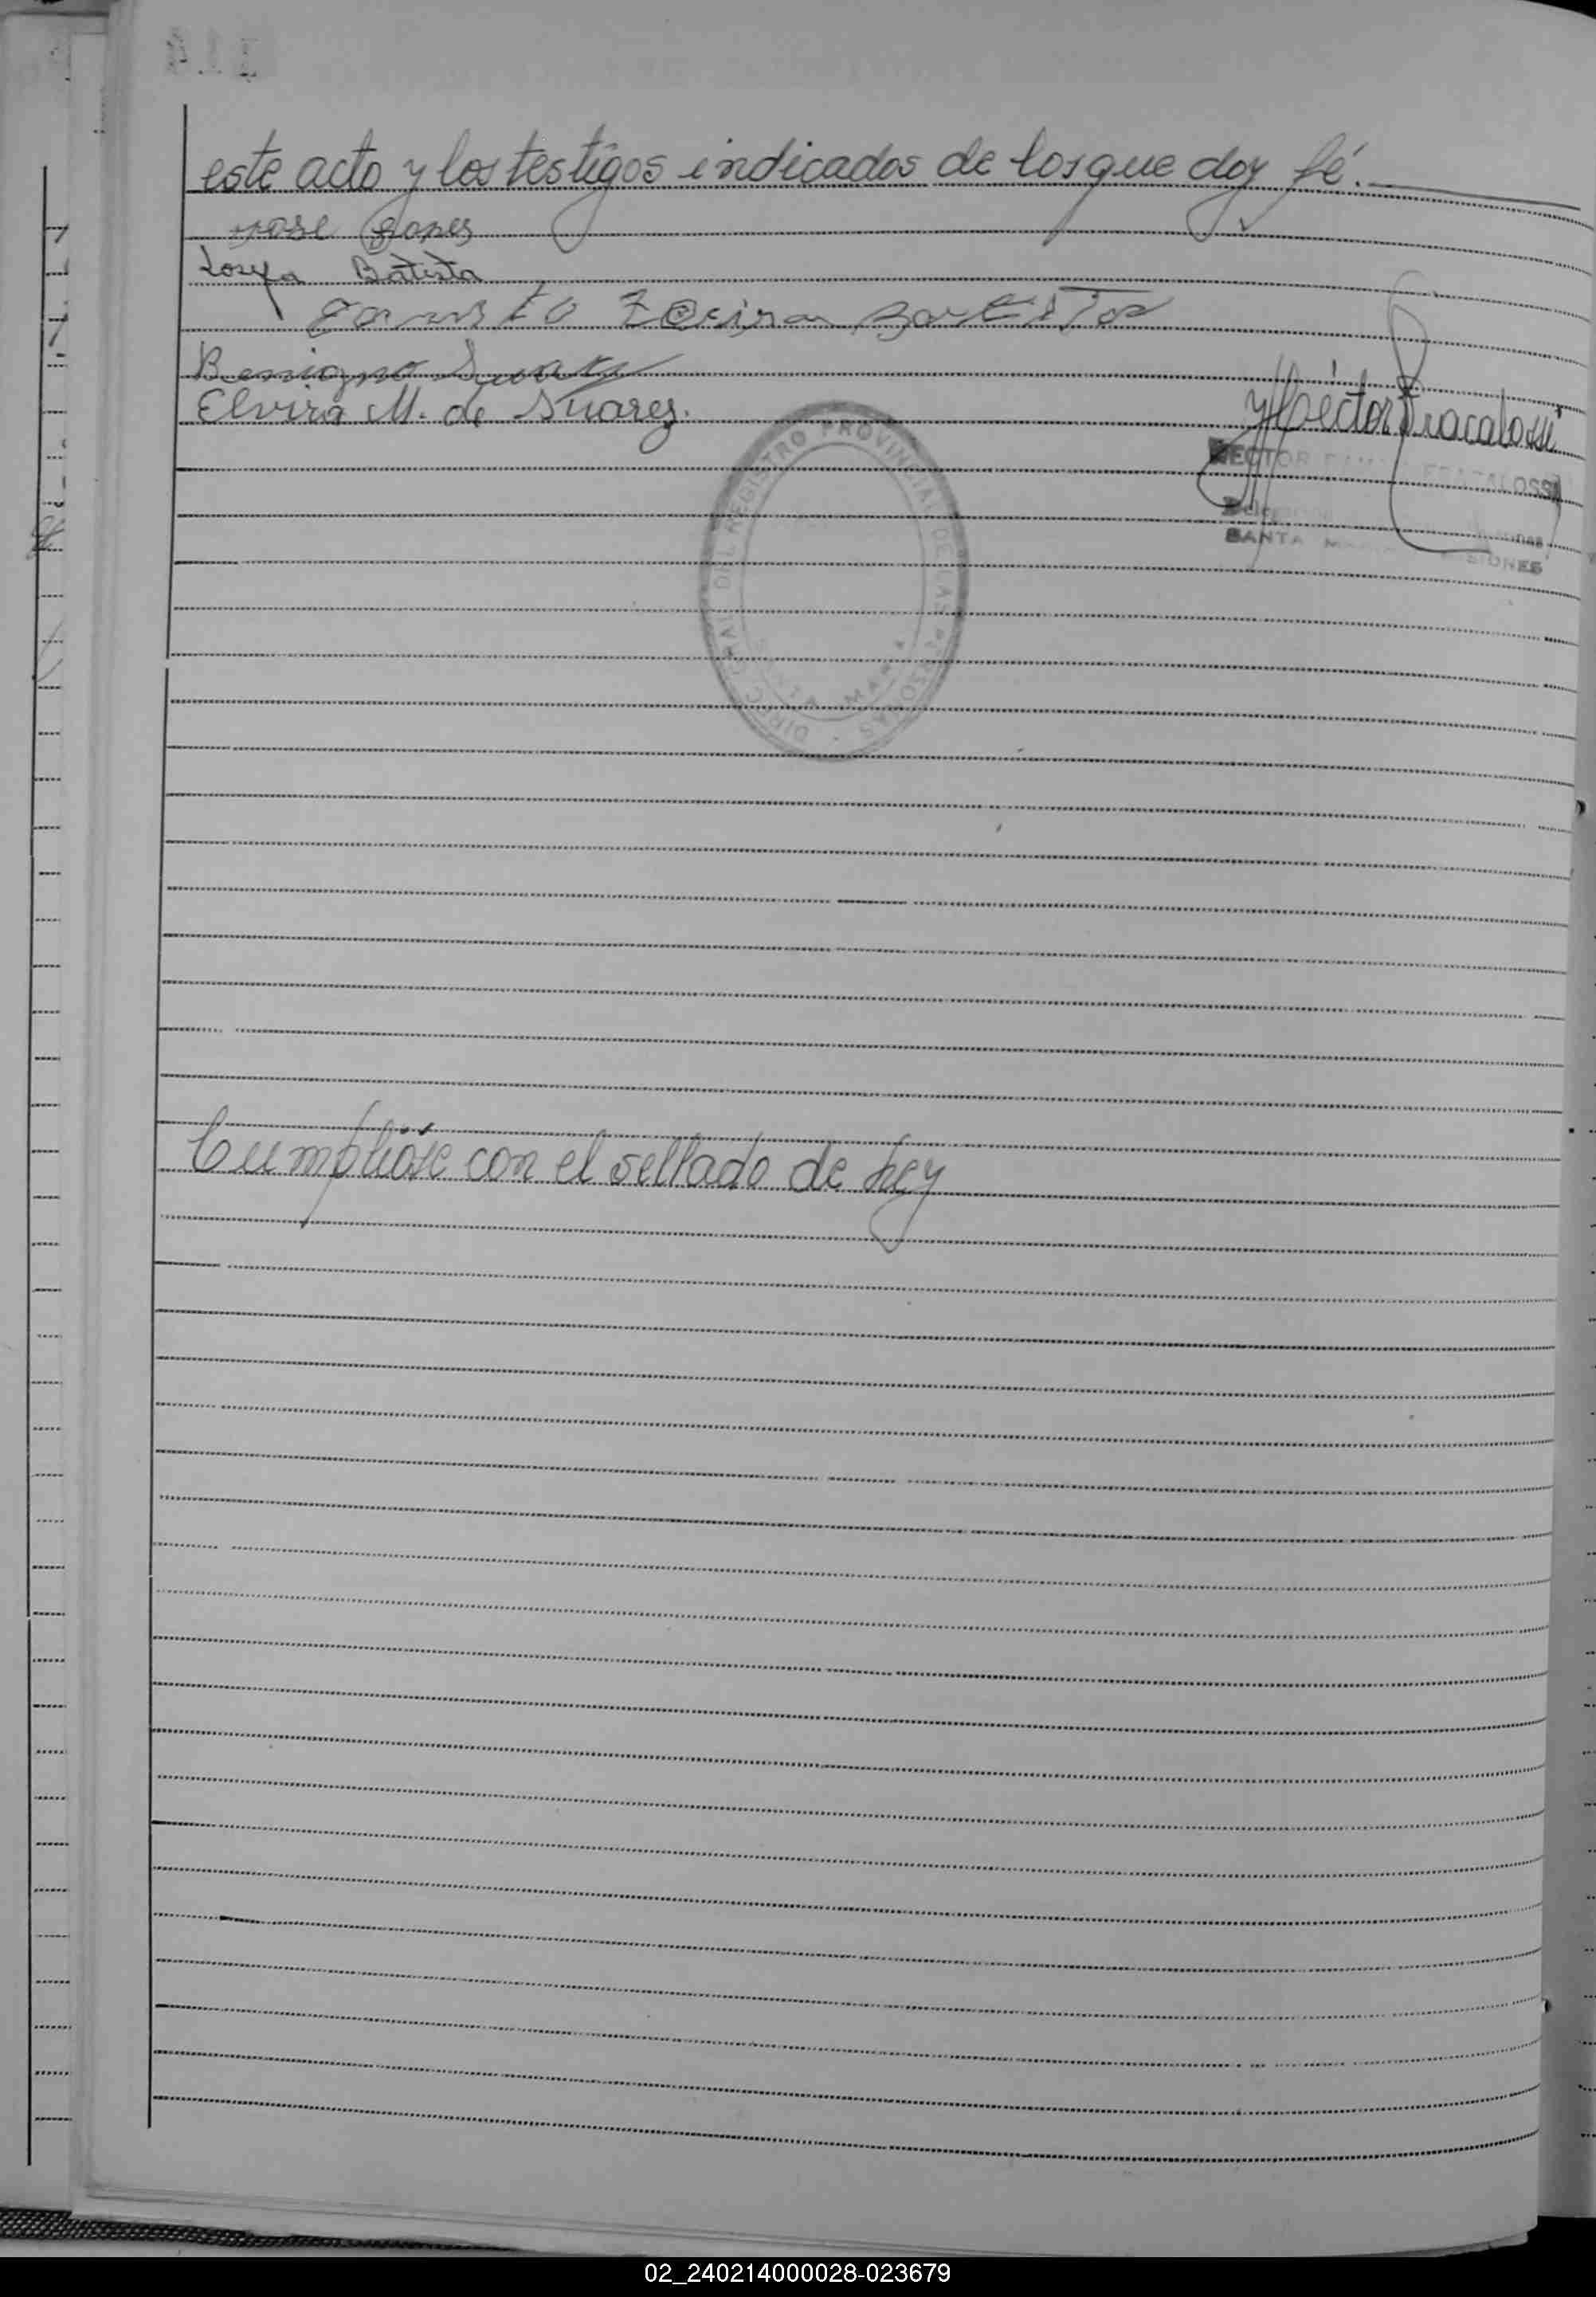 este acto y los testigos indicados de los que doy fé.
Jose
Josefa Batista
Benigno Suarez
Elvira M. de Suarez.
Héctor Fracalossi
HECTOR FRACALOSSI
SANTA MARIA MISIONES
DIRECC GRAL DEL REGISTRO PROVINCIAL DE LAS PERSONAS
SANTA MARIA
Cumplióse con el sellado de ley
02_240214000028-023679